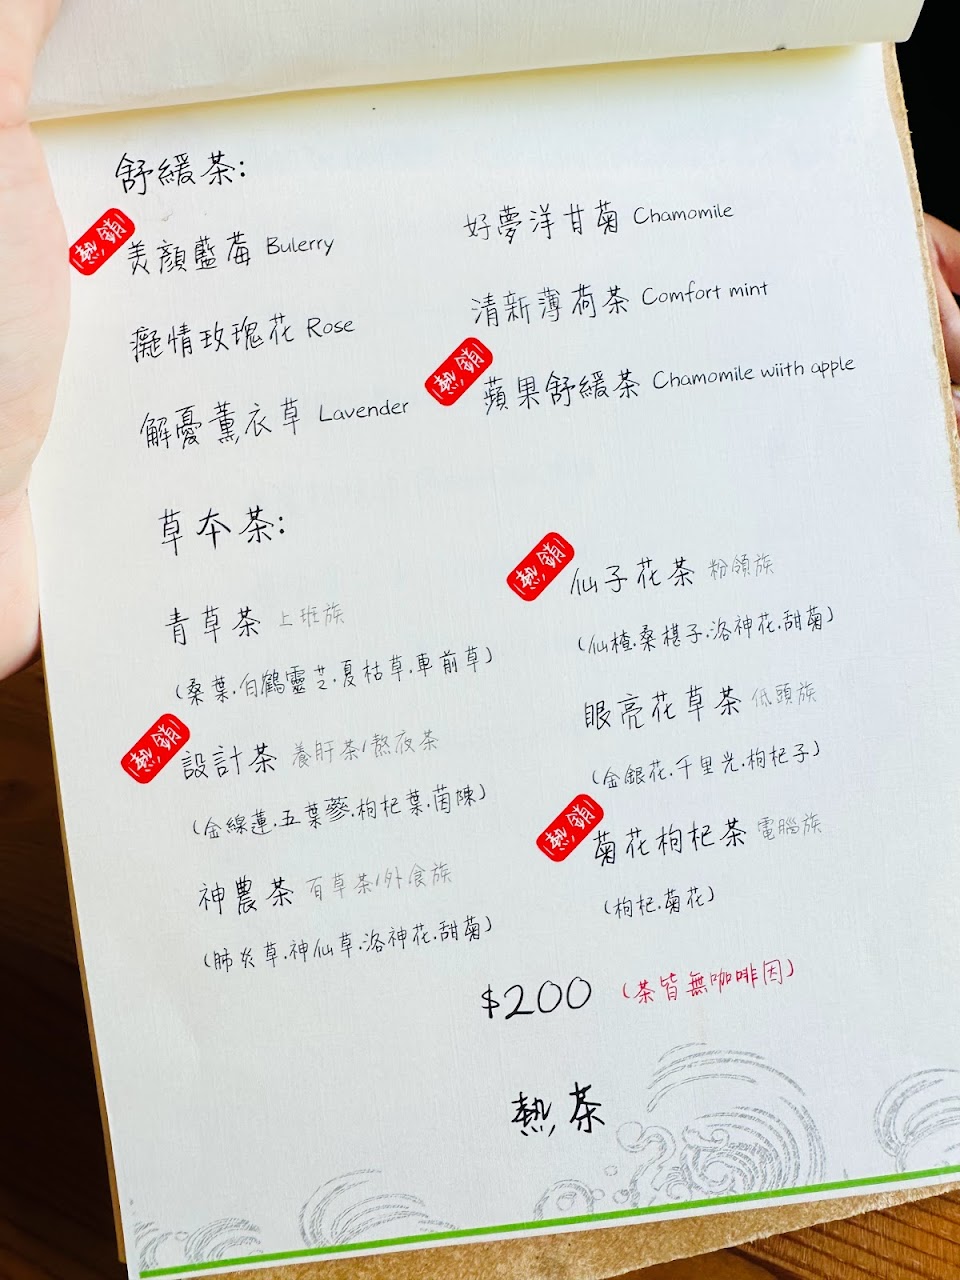 舒緩茶:
熱銷
美顏藍莓 Bulerry
好夢洋甘菊 Chamomile
癡情玫瑰花 Rose
清新薄荷茶 Comfort mint
解憂薰衣草 Lavender
熱銷
蘋果舒緩茶 Chamomile wiith apple
草本茶:
青草茶 上班族
(桑葉.白鶴靈芝.夏枯草.車前草)
熱銷
仙子花茶 粉領族
(仙楂.桑椹子.洛神花.甜菊)
熱銷
設計茶 養肝茶/熬夜茶
(金線蓮.五葉蔘.枸杞葉.茵陳)
眼亮花草茶 低頭族
(金銀花.千里光.枸杞子)
神農茶 百草茶/外食族
(肺炎草.神仙草.洛神花.甜菊)
熱銷
菊花枸杞茶 電腦族
(枸杞.菊花)
$200 (茶皆無咖啡因)
熱茶